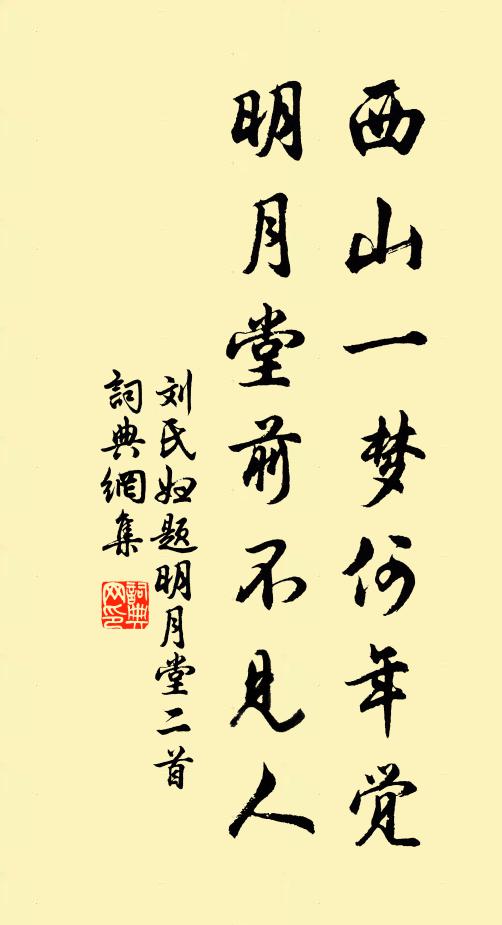 西山一梦何年觉
明月堂前不见人
刘氏妇题明月堂二首
詞典網集
詞典网印